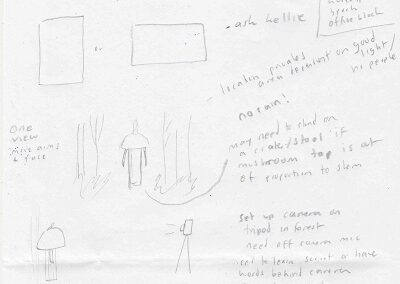 or
- ask kellie
beach
office block
- location privated
area dependent on good
light /
no people
no rain!
ONE
VIEW
more arms
& face
may need to stand on
a crate/stool if
mushroom top is out
of proportion to stem
set up camera on
tripod in forest
need off camera mic
need to learn script or have
words behind camera